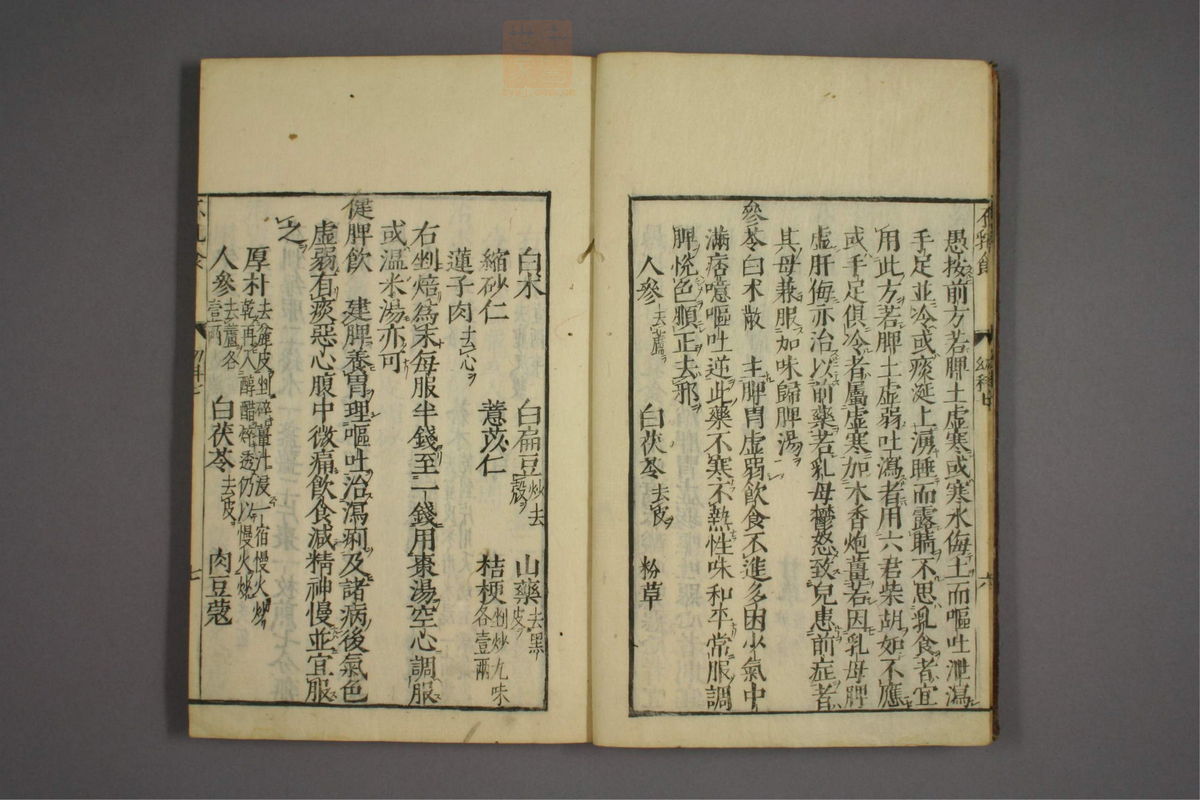 愚按前方若脾土虚寒或寒水侮土而嘔吐泄瀉
手足並冷或痰涎上湧睡而露睛不思乳食者宜
用此方若脾土虚弱吐瀉者用六君柴胡如不應
或手足俱冷者屬虚寒加木香炮薑若因乳母脾
虚肝侮亦治以前藥若乳母鬱怒致兒患前症者
其母兼服加味歸脾湯
參苓白术散 主脾胃虚弱飲食不進多困少氣中
滿痞噫嘔吐逆此藥不寒不熱性味和平常服調
脾悅色順正去邪
人參去蘆 白茯苓去皮 粉草
白术 白扁豆炒去殼 山藥去黑皮
縮砂仁 薏苡仁 桔梗剉炒九味各壹兩
蓮子肉去心
右剉焙爲末每服半錢至一錢用棗湯空心調服
或溫米湯亦可
健脾飲 建脾養胃理嘔吐治瀉痢及諸病後氣色
虚弱有痰惡心腹中微痛飲食減精神慢並宜服
之
厚朴去麄皮剉碎薑汁浸一宿慢火炒乾再入醇醋碎透仍以慢火炒
人參去蘆各壹兩 白茯苓去皮 肉豆蔻
七